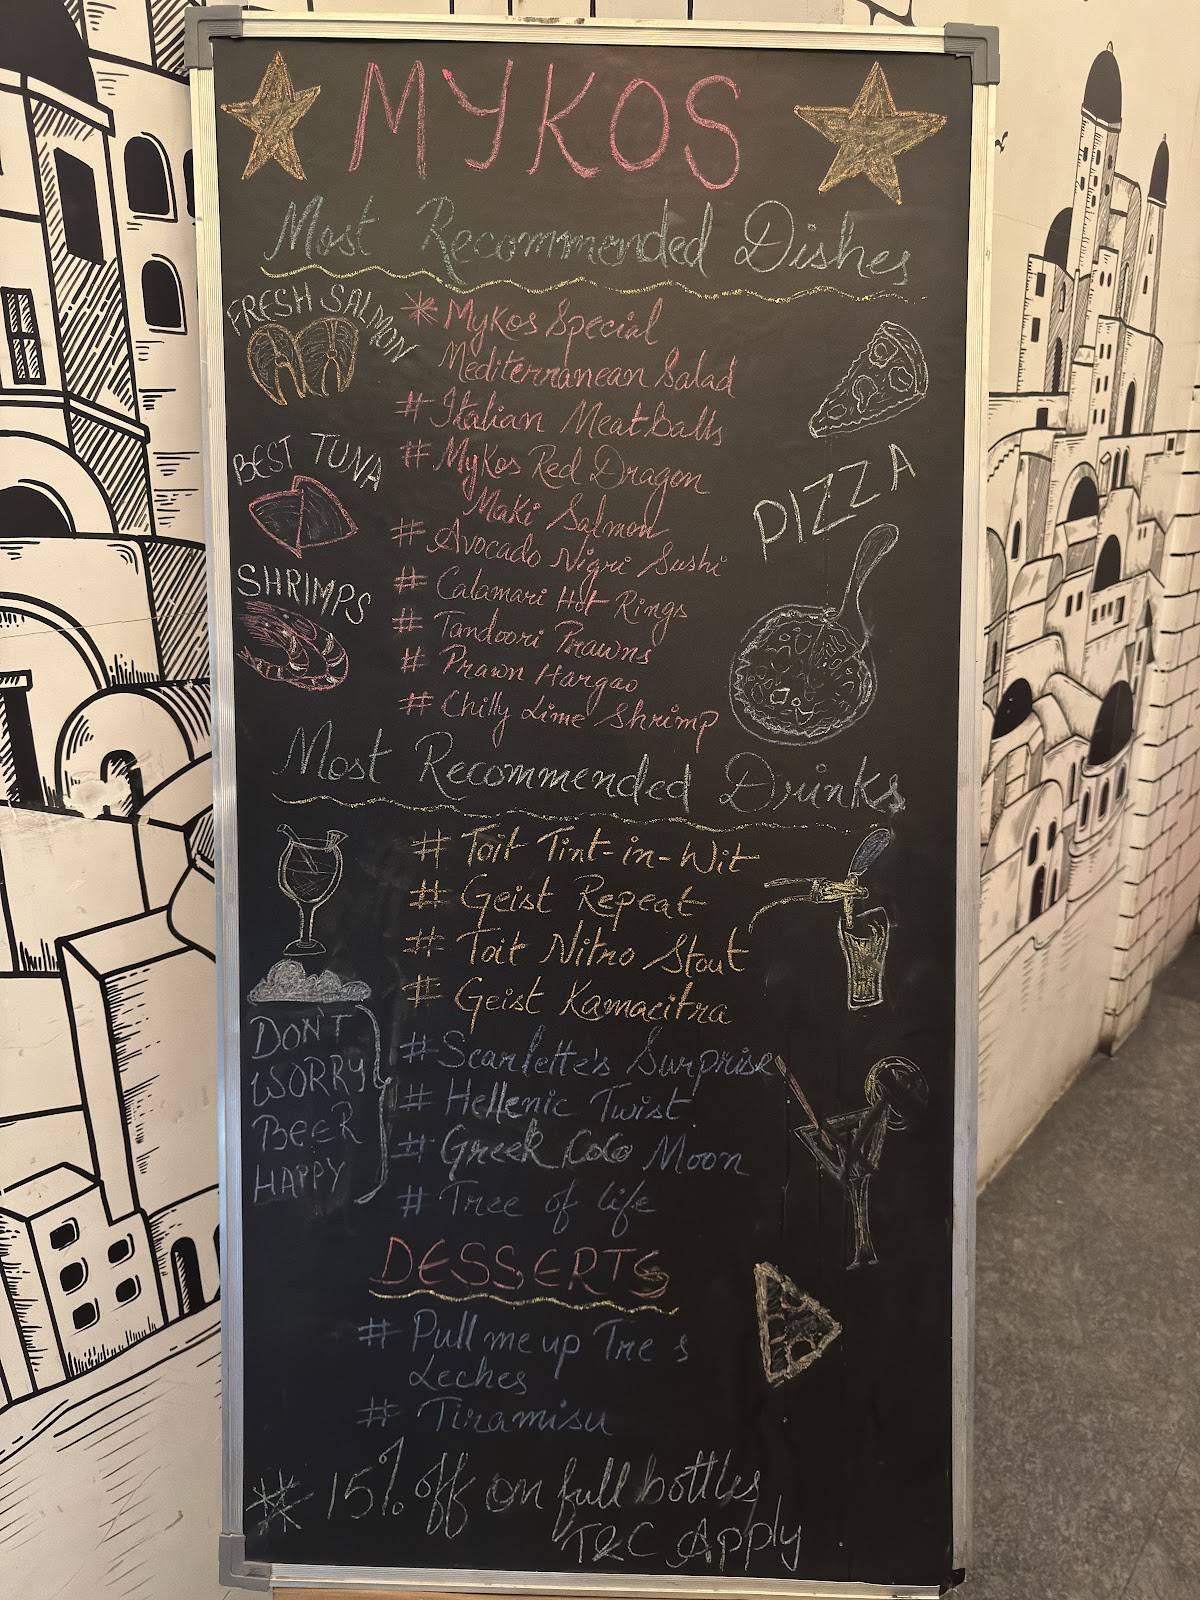 MYKOS
Most Recommended Dishes
FRESH SALMON
* Mykos Special
Mediterranean Salad
# Italian Meatballs
BEST TUNA
# Mykos Red Dragon
Maki Salmon
# Avocado Nigri Sushi
PIZZA
SHRIMPS
# Calamari Hot Rings
# Tandoori Prawns
# Prawn Hargao
# Chilly Lime Shrimp
Most Recommended Drinks
# Toit Tint-in-Wit
# Geist Repeat
# Toit Nitro Stout
# Geist Kamacitra
DON'T
WORRY
BEER
HAPPY
# Scarlette's Surprise
# Hellenic Twist
# Greek CoCo Moon
# Tree of life
DESSERTS
# Pull me up Tre s
Leches
# Tiramisu
* 15% off on full bottles
T&C Apply